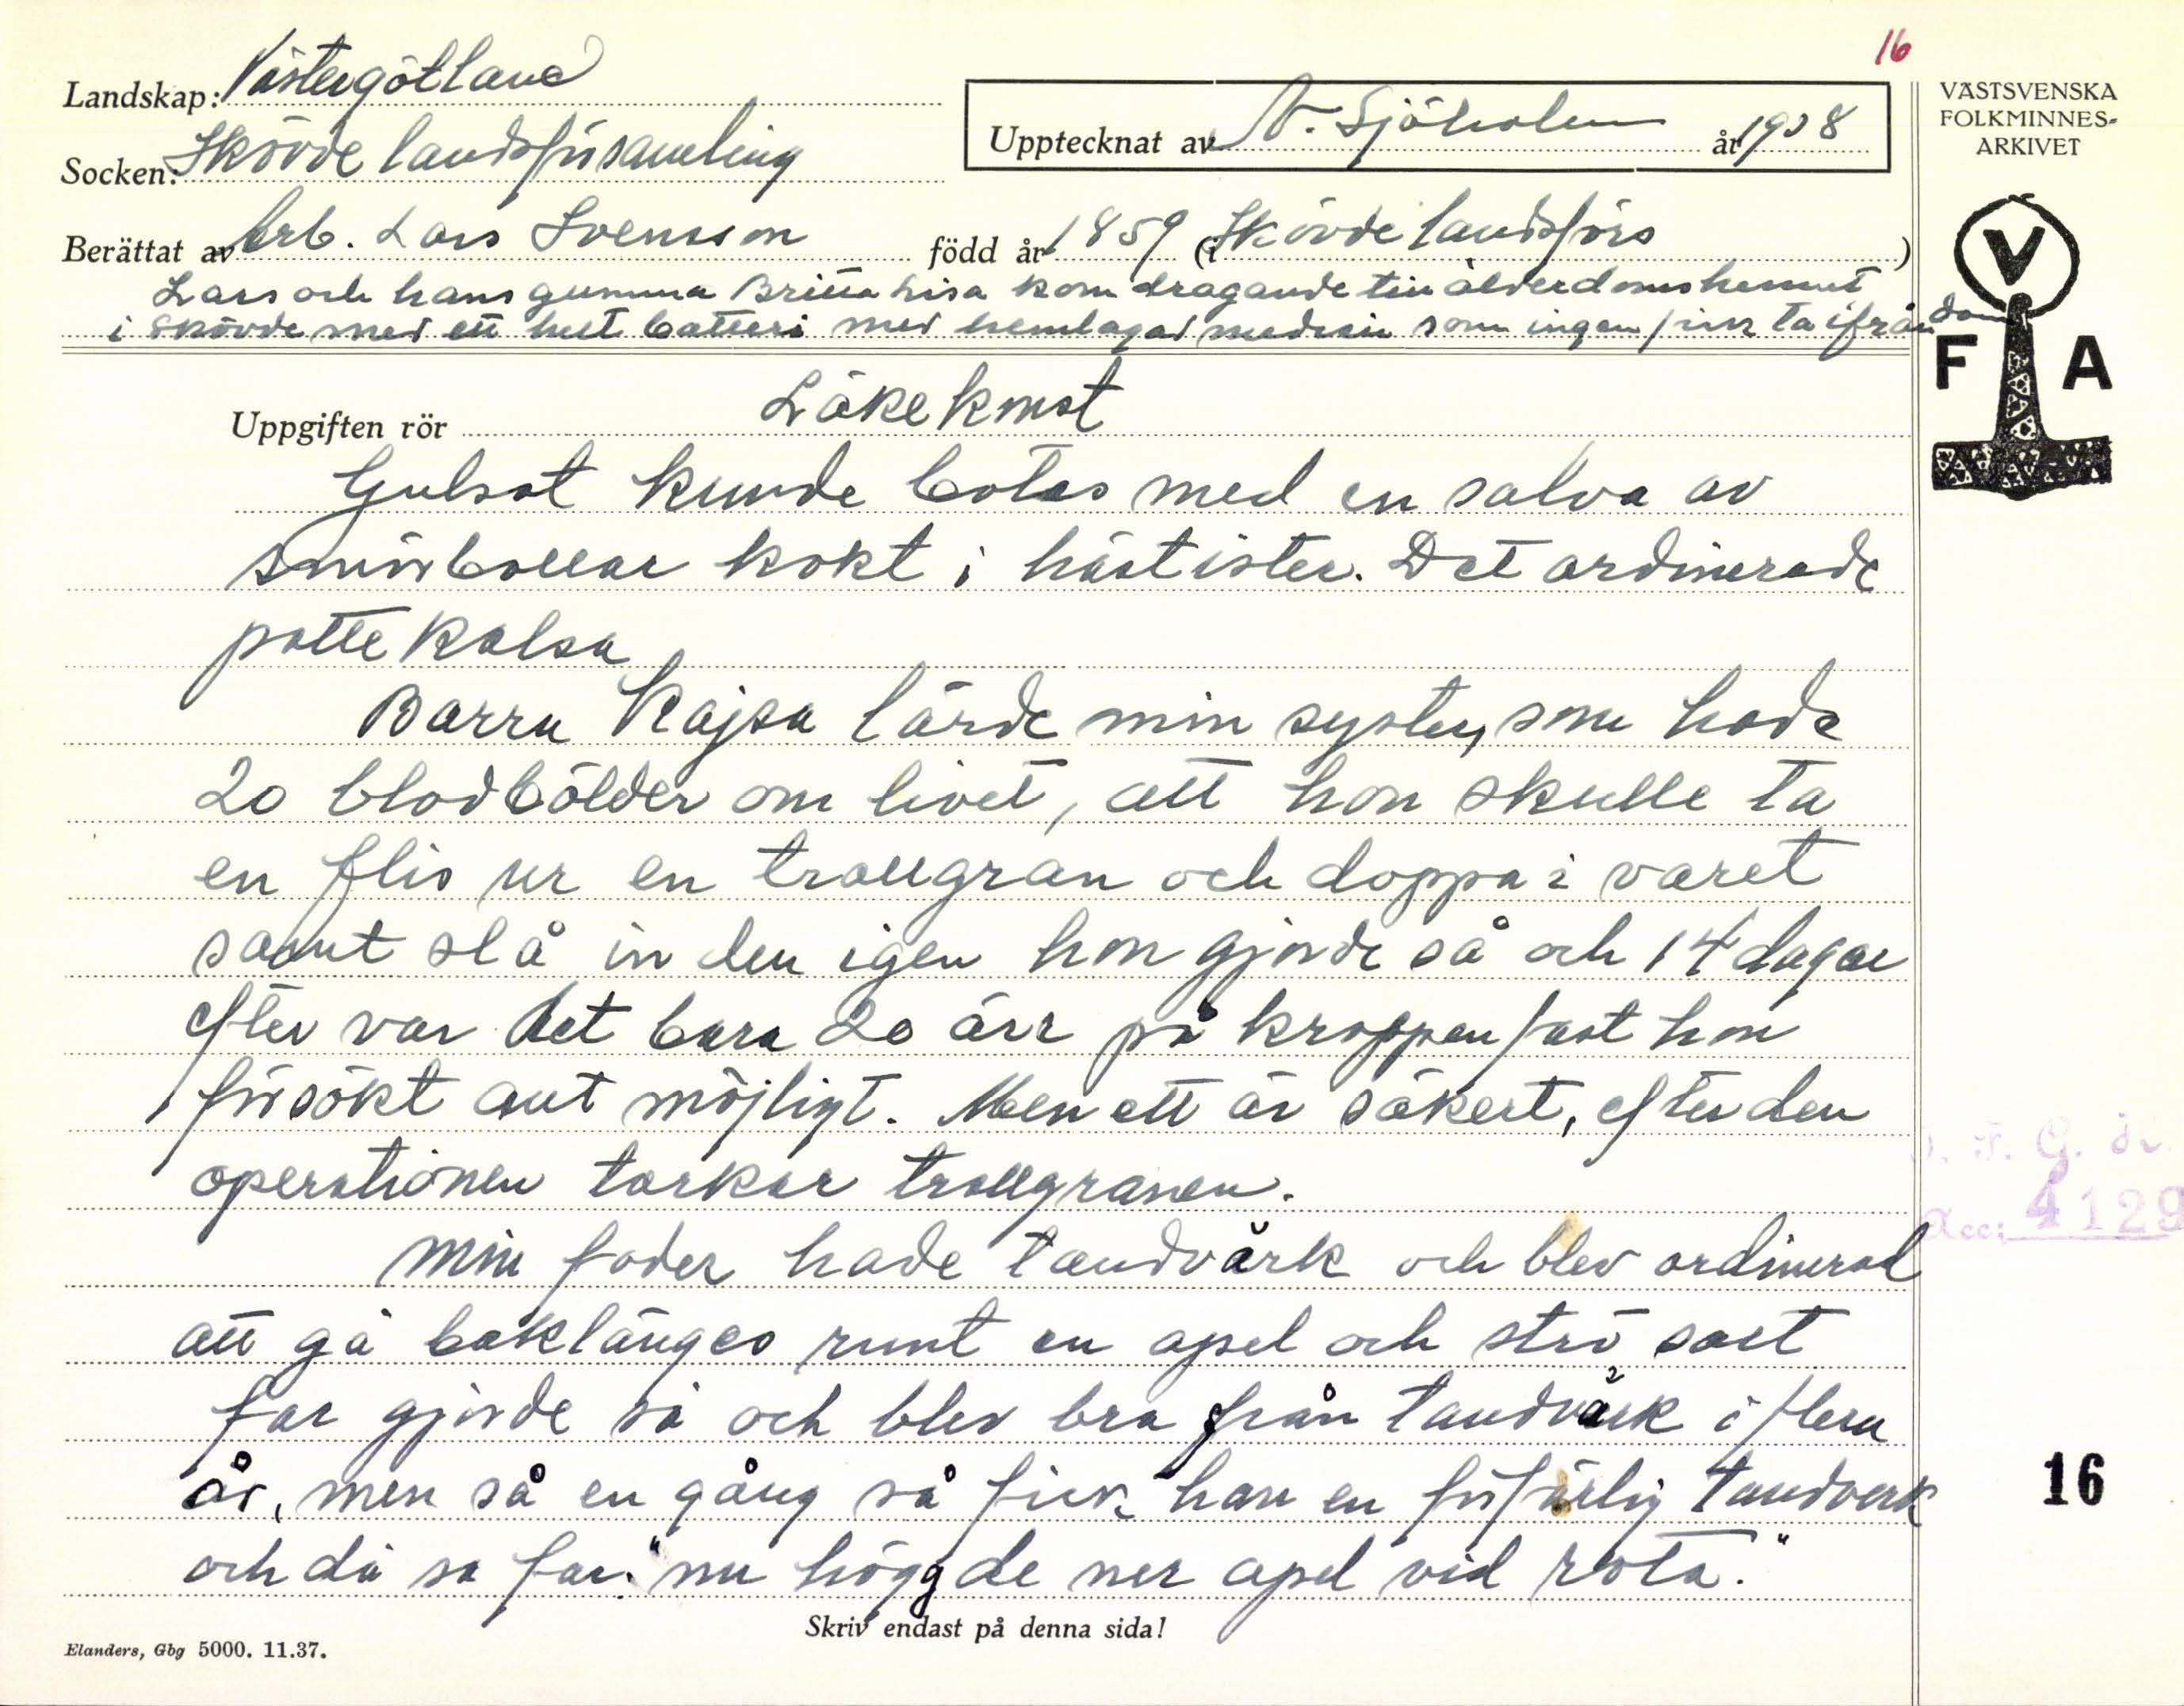 16
Landskap: Västergötland
Socken: Skövde landsförsamling
Upptecknat av N. Sjöholm år 1938
Berättat av Arb. Lars Svensson född år 1859 (i Skövde landsförs )
Lars och hans gumma Britta Lisa kom dragande till ålderdomshemmet
i Skövde med ett helt batteri med hemlagad medicin som ingen fick ta ifrån dom
VÄSTSVENSKA
FOLKMINNES-
ARKIVET
V
F A
Uppgiften rör Läkekonst
Gulsot kunde botas med en salva av
smörbollar kokt i hästister. Det ordinerade
Kalsa
Barra Kajsa lärde min syster, som hade
20 blodbölder om livet, att hon skulle ta
en flis ur en trollgran och doppa i varet
samt slå in den igen hon gjorde så och 14 dagar
efter var det bara 20 ärr på kroppen fast hon
försökt allt möjligt. Men ett är säkert, efter den
operationen torkar trollgranen.
Min fader hade tandvärk och blev ordinerad
att gå baklänges runt en apel och strö salt
far gjorde så och blev bra från tandvärk i flera
år, men så en gång så fick han en förfärlig tandverk
och då sa far: "nu högg de ner apel vid rota."
Acc: 4129
16
Skriv endast på denna sida!
Elanders, Gbg 5000. 11.37.